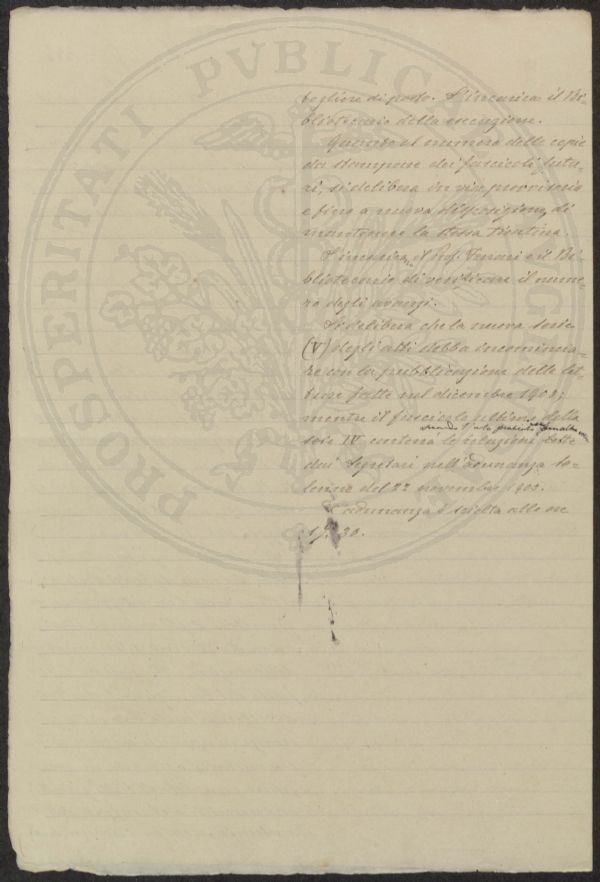 PROSPERITATI PUBLICAE AUGENDAE
di posto. S'incarica il Bi-
bliotecario della esecuzione.
Quanto al numero delle copie
da stampare dei fascicoli futu-
ri, si delibera in via provvisoria
e fino a nuova disposizione, di
mantenere la stessa
S'incarica il Prof. e il Bi-
bliotecario di verificare il nume-
ro degli avanzi.
Si delibera che la nuova serie
(V) degli atti debba incomincia-
re con la pubblicazione delle let-
ture fatte nel dicembre 1902;
mentre il fascicolo ultimo della
serie IV conterrà le relazioni lette
dai Segretari nell'adunanza so-
lenne del novembre 1902.
L'adunanza è sciolta alle ore
30.